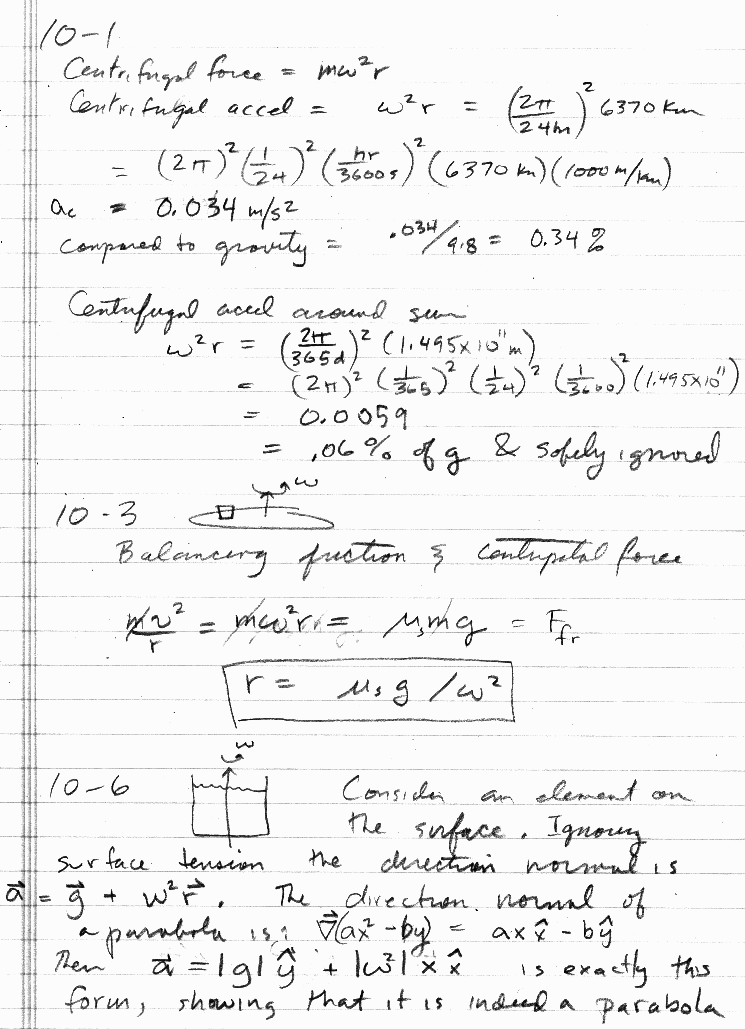 10-1
Centrifugal force = mω²r
Centrifugal accel = ω²r = (2π/24hr)² 6370 km
= (2π)² (1/24)² (hr/3600s)² (6370 km)(1000 m/km)
a_c = 0.034 m/s²
compared to gravity = .034/9.8 = 0.34 %
Centrifugal accel around sun
ω²r = (2π/365d)² (1.495×10¹¹ m)
= (2π)² (1/365)² (1/24)² (1/3600)² (1.495×10¹¹)
= 0.0059
= .06% of g & safely ignored
ω
10-3
Balancing friction & centripetal force
mv²/r = mω²r = μₛmg = F_fr
r = μₛ g / ω²
ω
10-6 Consider an element on
the surface. Ignoring
surface tension the direction normal is
a⃗ = g⃗ + ω²r⃗. The direction normal of
a parabola is: ∇⃗(ax² - by) = ax x̂ - b ŷ
Then a⃗ = |g| ŷ + |ω²| x x̂ is exactly this
form, showing that it is indeed a parabola